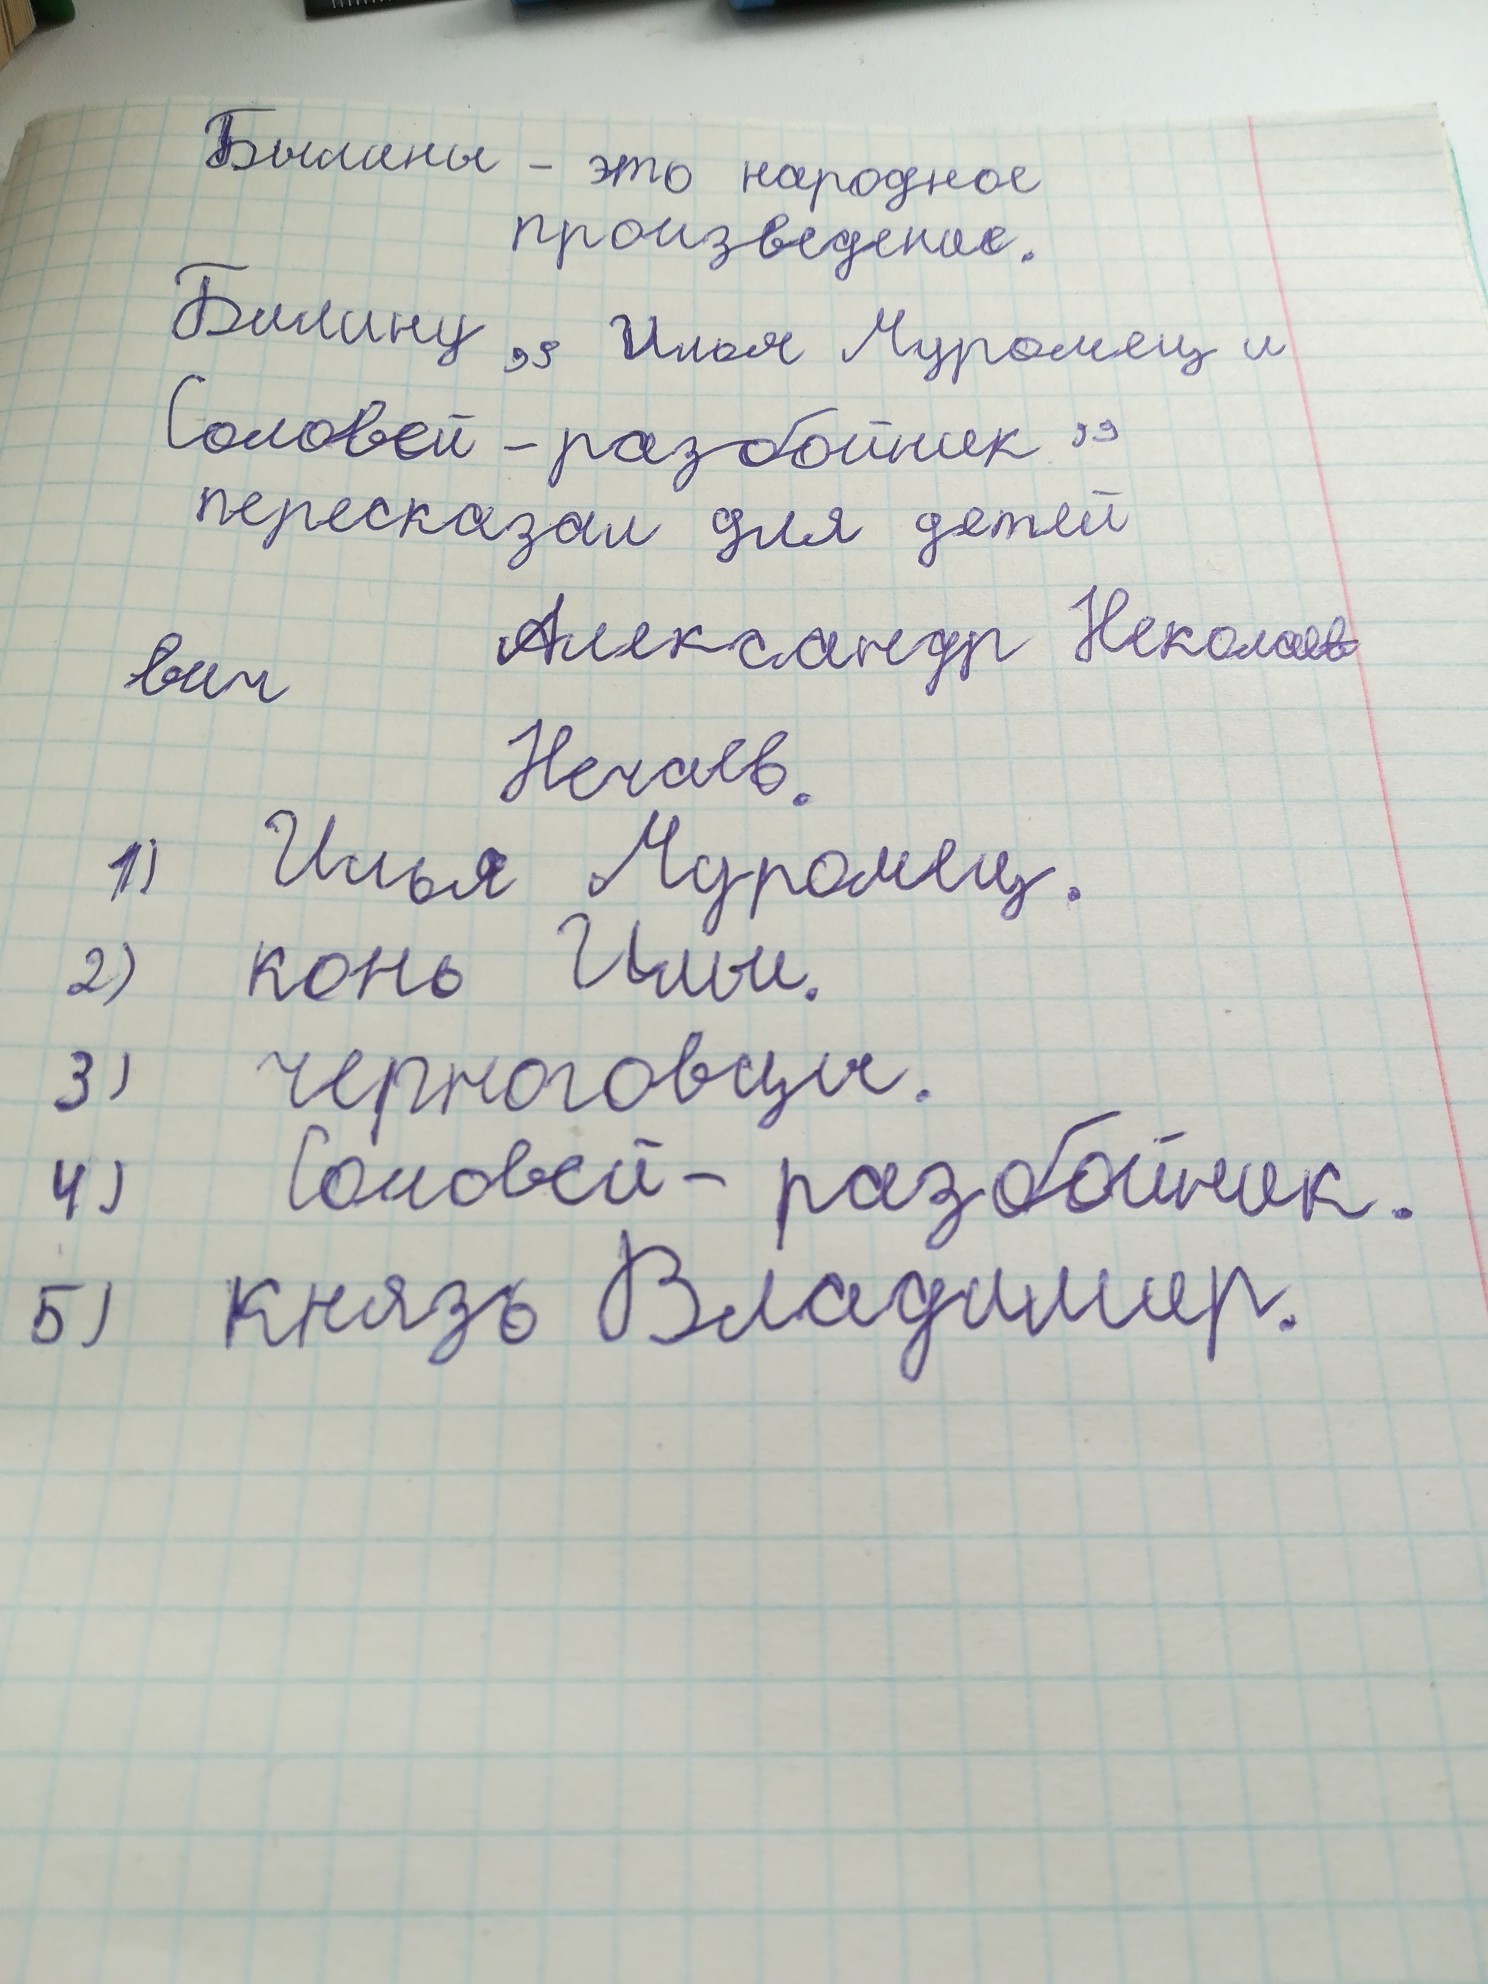 Былины - это народное
произведение.
Билину „ Илья Муромец и
Соловей - разбойник ”
пересказал для детей
Александр Неколаев
вич
Нечаев.
1) Илья Муромец.
2) конь Ильи.
3) черноговцы.
4) Соловей - разбойник.
5) князь Владимир.